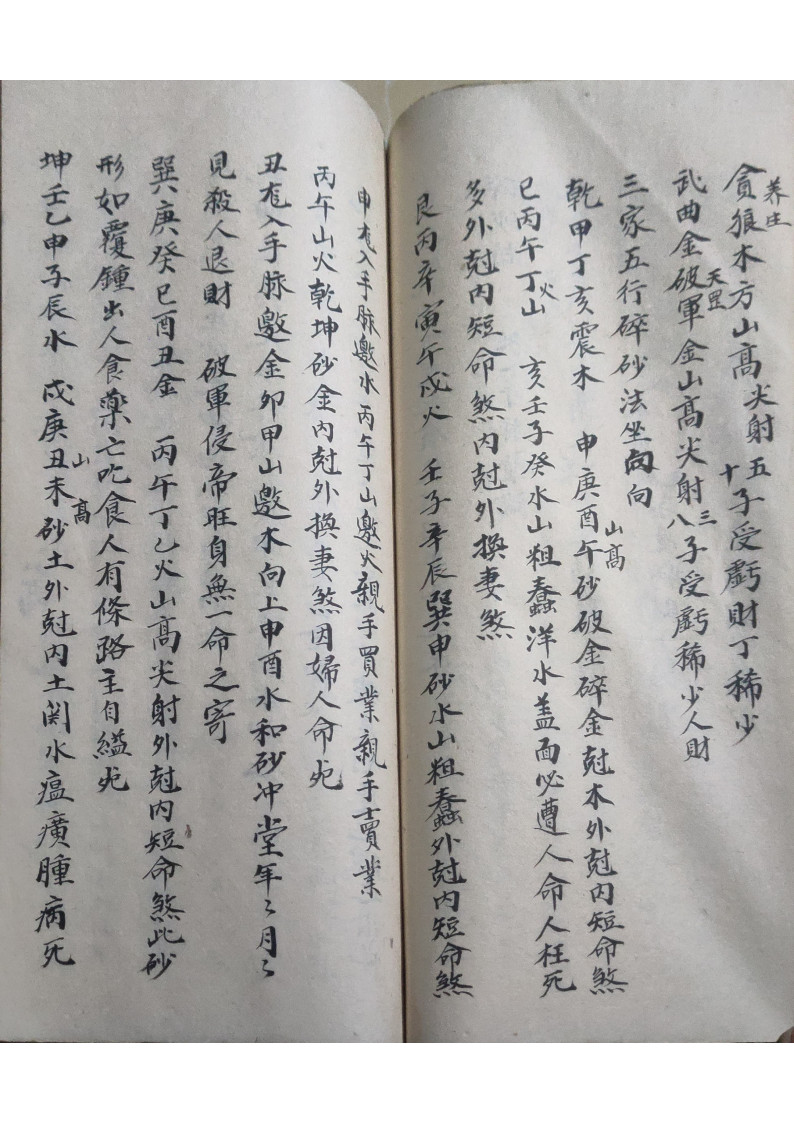 养生
貪狼木方山髙尖射五十子受虧財丁稀少
武曲金破軍金山髙尖射三八子受虧稀少人財
天罡
三家五行碎砂法坐向向
乾甲丁亥震木 申庚酉午砂破金碎金尅木外尅内短命煞
山髙
巳丙午丁火山 亥壬子癸水山粗蠢洋水盖面必遭人命人枉死
多外尅内短命煞内尅外換妻煞
艮丙辛寅午戌火 壬子辛辰巽申砂水山粗蠢外尅内短命煞
申龙入手脉邀水丙午丁山邀火親手買業親手賣業
丙午山火乾坤砂金内尅外換妻煞因婦人命死
丑龙入手脉邀金卯甲山邀木向上申酉水和砂冲堂年〻月〻
見殺人退財 破軍侵帝旺身無一命之寄
巽庚癸巳酉丑金 丙午丁乙火山髙尖射外尅内短命煞此砂
形如覆鍾出人食藥亡吃食人有條路主自縊死
坤壬乙申子辰水 戌庚丑未砂土外尅内土関水瘟癀腫病死
山髙